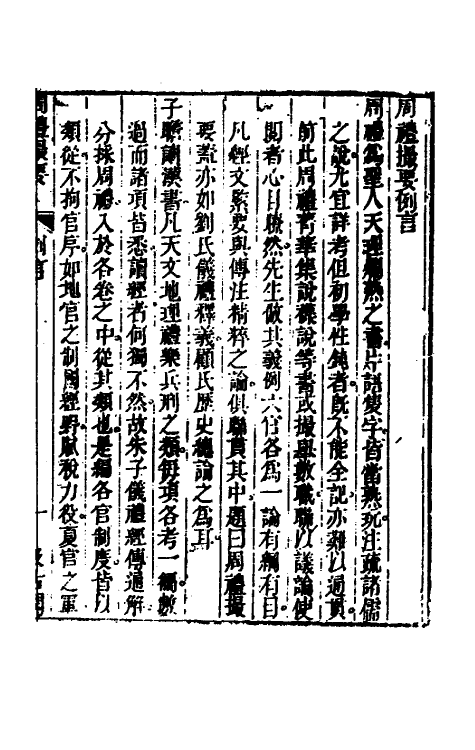 周禮撮要例言
周禮爲聖人天理爛熟之書片語隻字皆當熟玩注疏諸儒
之說尤宜詳考但初學性鈍者旣不能全記亦難以過頁
前此周禮菁華集說標說等書或撮興數職聯以議論使
閱者心目瞭然先生倣其義例六官各爲一論有綱有目
凡經文緊要與傳注精粹之論俱聯貫其中題曰周禮撮
要蓋亦如劉氏儀禮釋義顧氏歷史總論之爲耳
子瞻讀漢書凡天文地理禮樂兵刑之類每項各考一編數
過而諸項皆悉讀經者何獨不然故朱子儀禮經傳通解
分採周禮入於各卷之中從其類也是編各官制度皆以
類從不拘官序如地官之制國經野賦稅力役夏官之軍
周禮撮要
例言
一